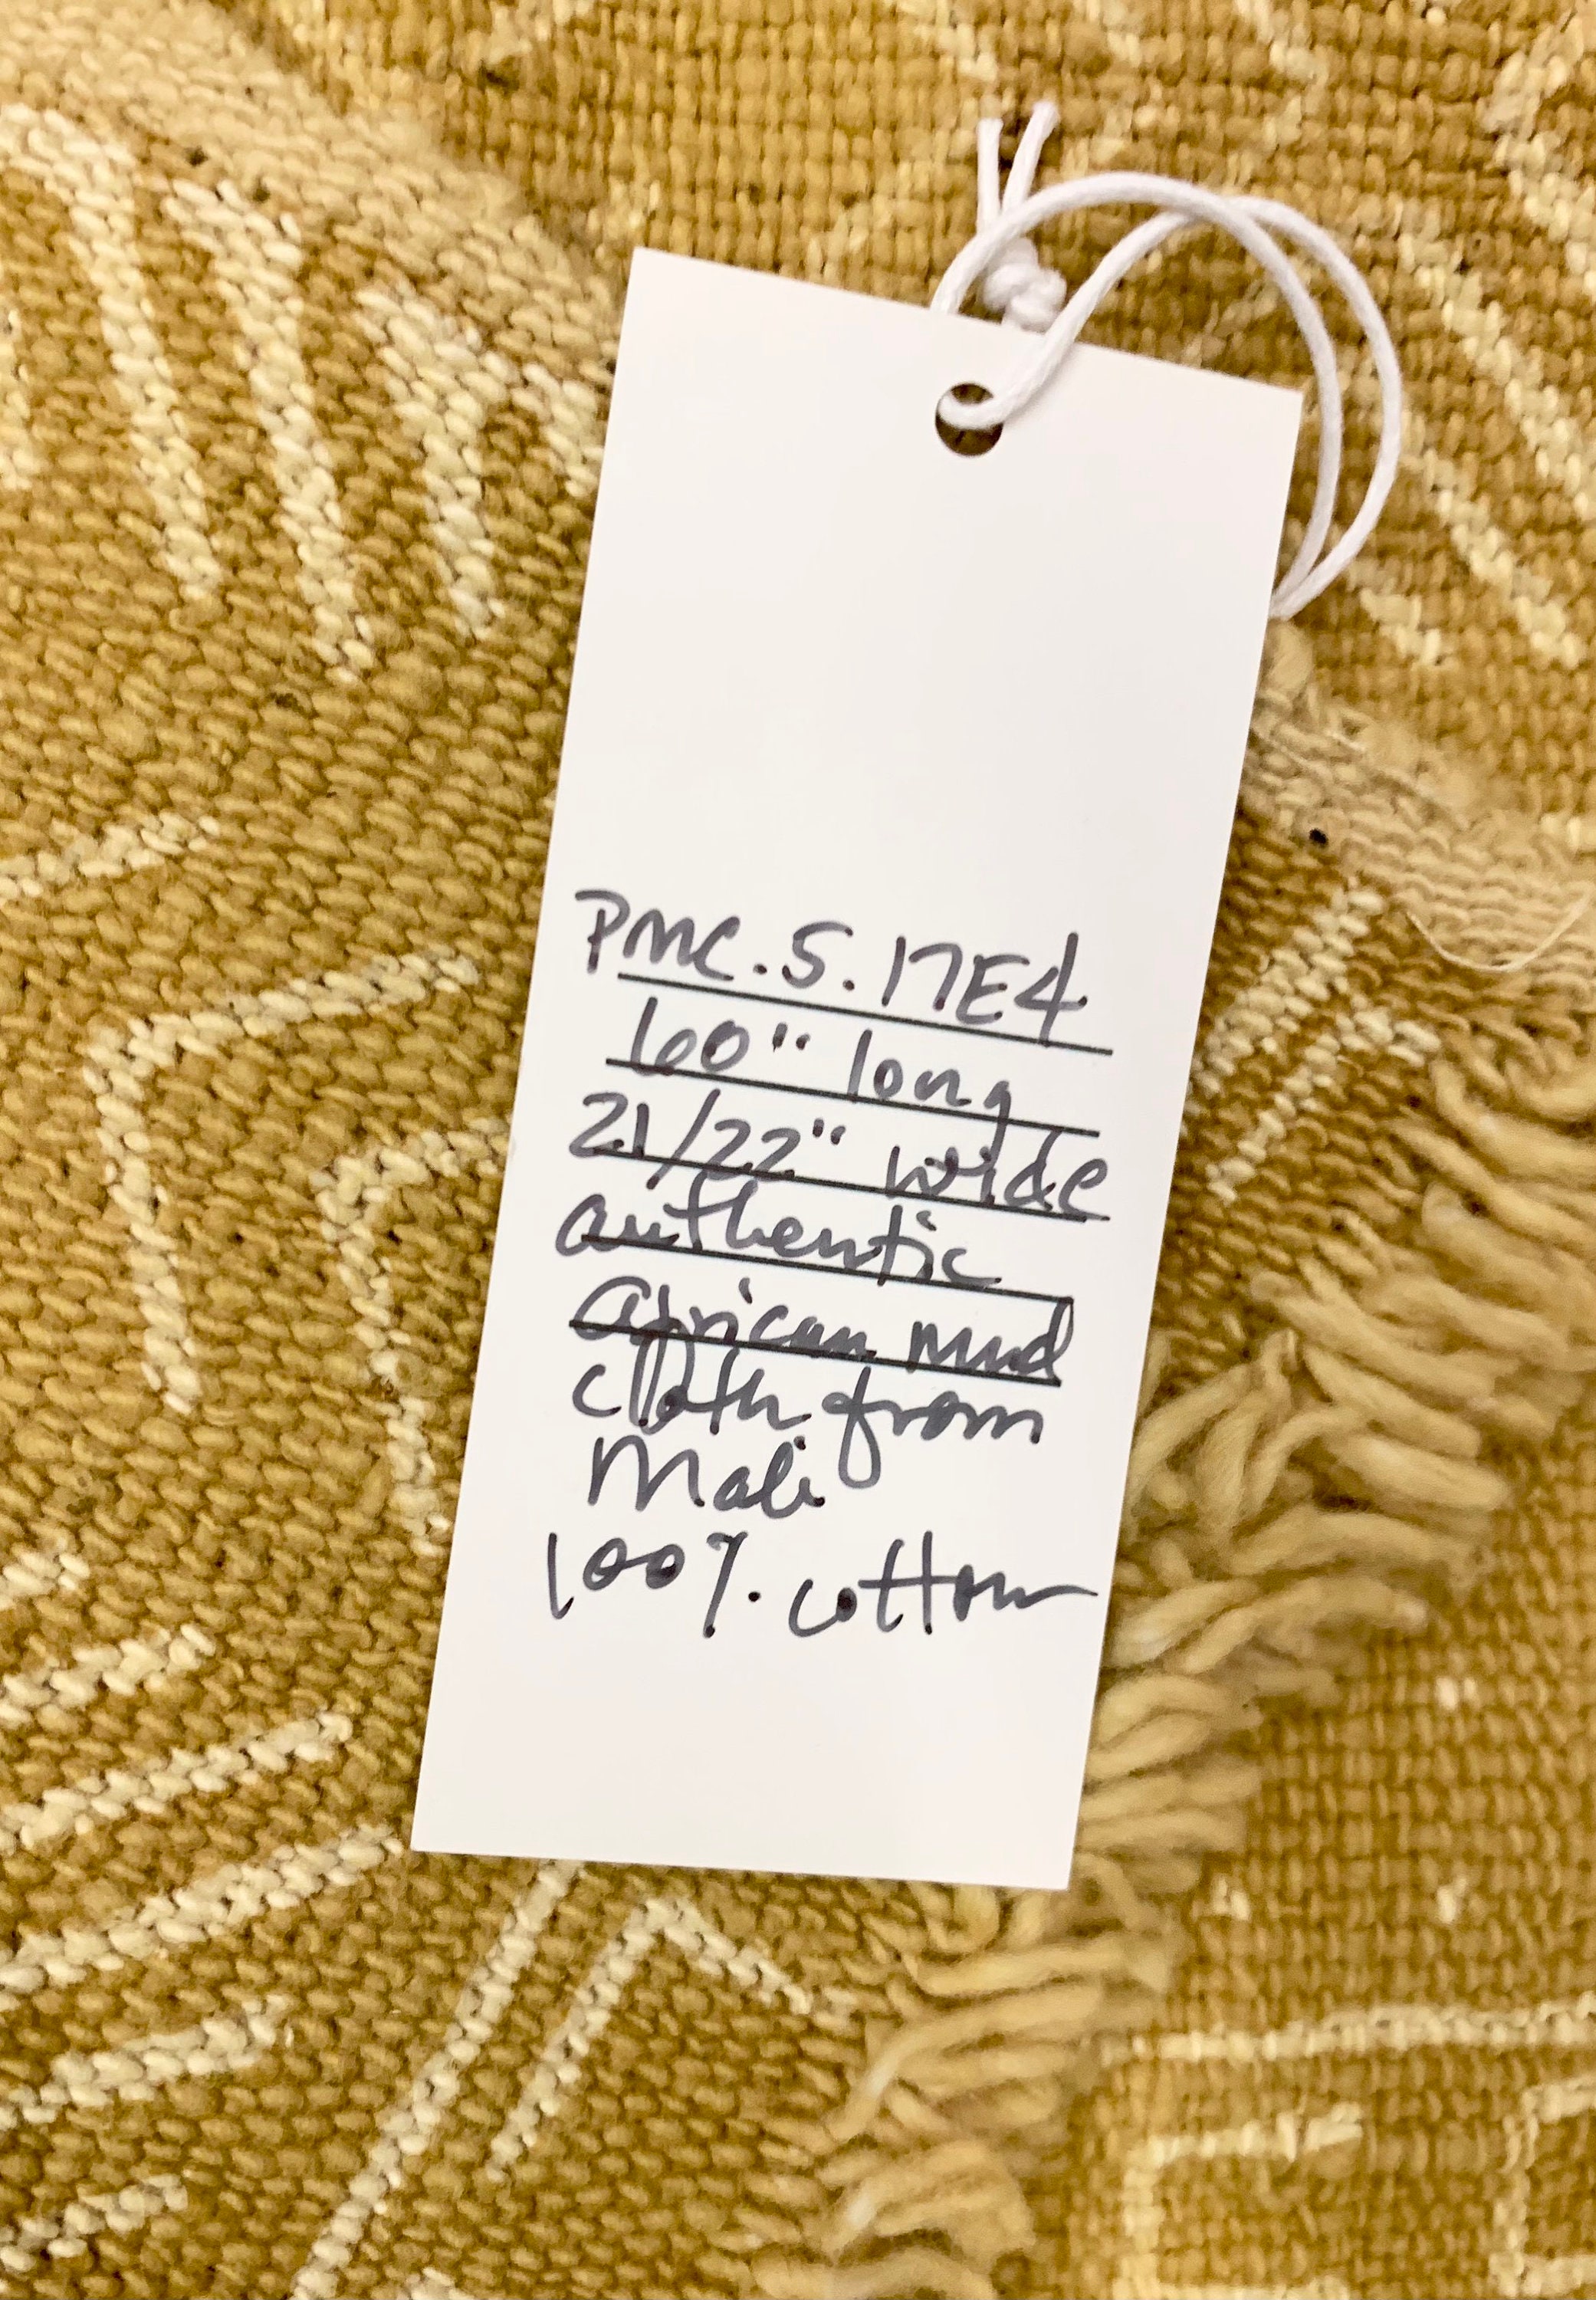 PMC.S.17E4
60" long
21/22" wide
authentic
African mud
cloth from
Mali
100% cotton